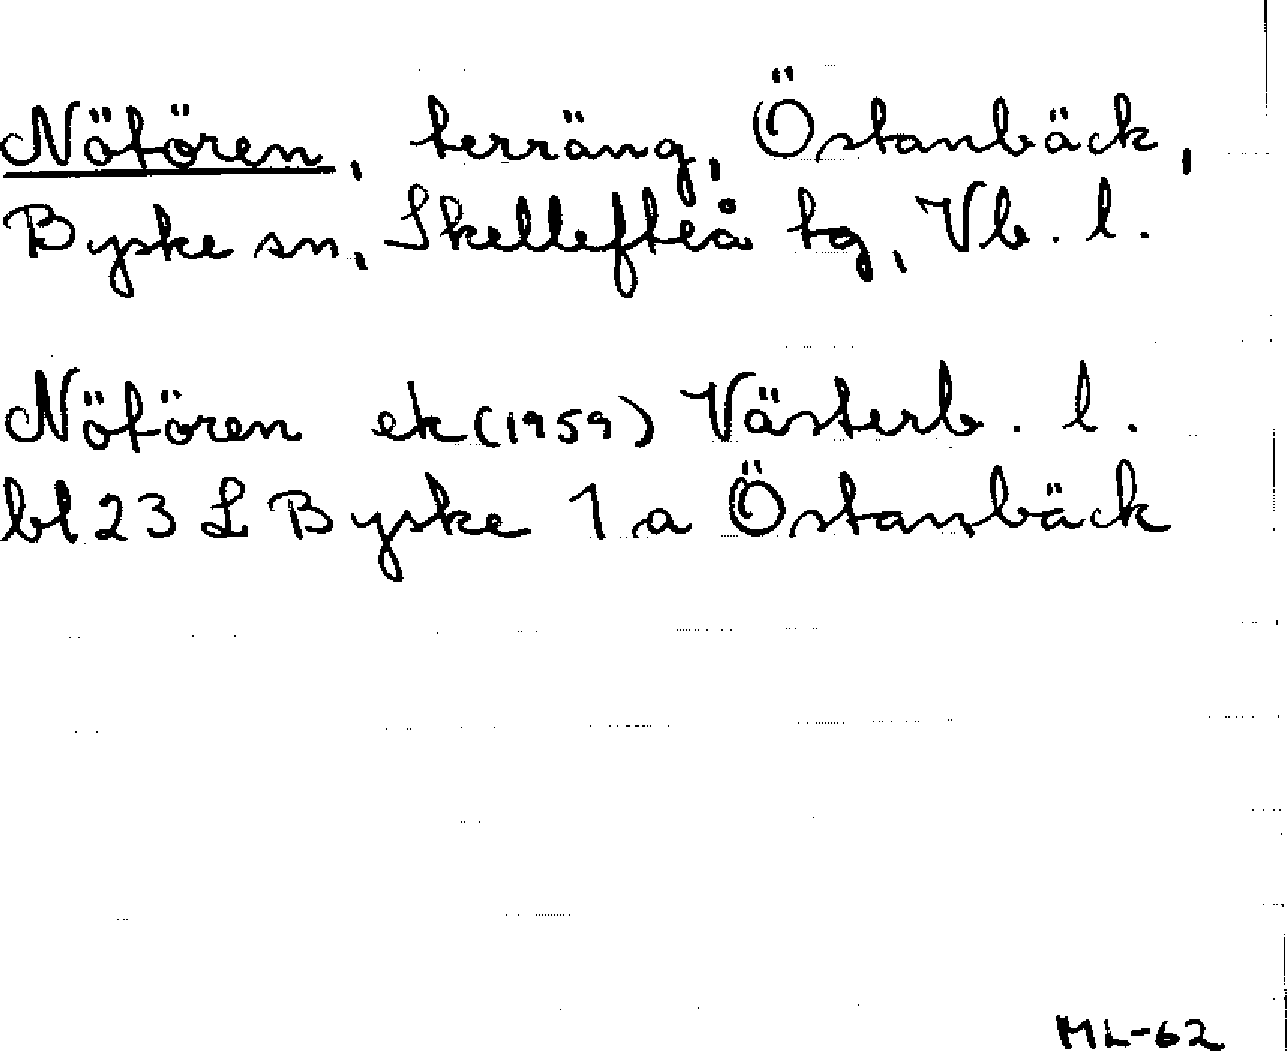 Nötören, terräng, Östanbäck,
Byske sn, Skellefteå tg, Vb. l.
Nötören ek (1959) Västerb. l.
bl 23 L Byske 1 a Östanbäck
ML-62